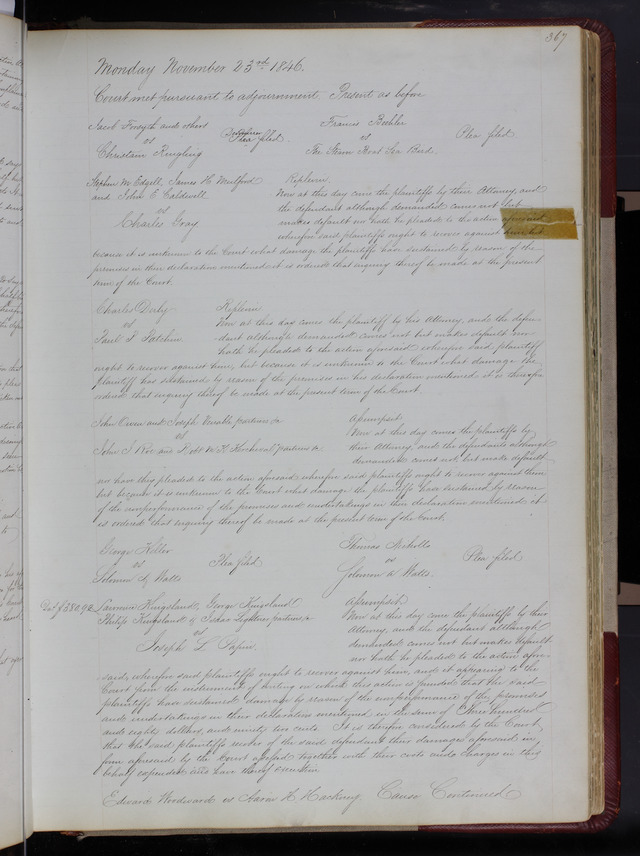 367
Monday November 23rd 1846.
Court met pursuant to adjournment. Present as before
Jacob Forsyth and others
vs
Christian Ringling
Plea filed.
Francis Beehler
vs
The Steam Boat Sea Bird.
Plea filed
Stephen M. Edgell, James H. Mulford
and John E Caldwell
vs
Charles Gray
Replevin.
Now at this day come the plaintiffs by their Attorney, and
the defendant although demanded comes not but
makes default nor hath he pleaded to the action aforesaid
wherefore said plaintiffs ought to recover against him but
because it is unknown to the Court what damage the plaintiffs have sustained by reason of the
premises in their declaration mentioned it is ordered that inquiry thereof be made at the present
term of the Court.
Charles Derby
vs
Paul F Patchin
Replevin
Now at this day comes the plaintiff by his Attorney, and the defen-
dant although demanded comes not but makes default nor
hath he pleaded to the action aforesaid wherefore said plaintiff
ought to recover against him, but because it is unknown to the Court what damage the
plaintiff has sustained by reason of the premises in his declaration mentioned it is therefore
ordered that inquiry thereof be made at the present term of the Court.
John Owen and Joseph partners &c
vs
John J Roe and partners &c
Assumpsit
Now at this day comes the plaintiffs by
their Attorney, and the defendants although
demanded comes not, but make default
nor have they pleaded to the action aforesaid wherefore said plaintiffs ought to recover against them
but because it is unknown to the Court what damage the plaintiffs have sustained by reason
of the nonperformance of the promises and undertakings in their declaration mentioned it
is ordered that inquiry thereof be made at the present term of the Court.
George Heller
vs
Solomon A Watts
Plea filed
Thomas Nicholls
vs
Solomon A Watts.
Plea filed
Lawrence Kingsland, George Kingsland
Philip Kingsland & Isaac Lightner partners &c
vs
Joseph L Papin.
Assumpsit
Now at this day come the plaintiffs by their
Attorney, and the defendant although
demanded comes not but makes default
nor hath he pleaded to the action afore-
said, wherefore said plaintiffs ought to recover against him, and it appearing to the
Court from the instrument of writing on which this action is founded that the said
plaintiffs have sustained damage by reason of the nonperformance of the promises
and undertakings in their declaration mentioned in the sum of Three hundred
and eighty dollars, and ninety two cents. It is therefore considered by the Court,
that the said plaintiffs recover of the said defendant their damages aforesaid in
form aforesaid by the Court assessed together with their costs and charges in this
behalf expended and have thereof execution.
Edward Woodward vs Aaron H Hackney Cause Continued